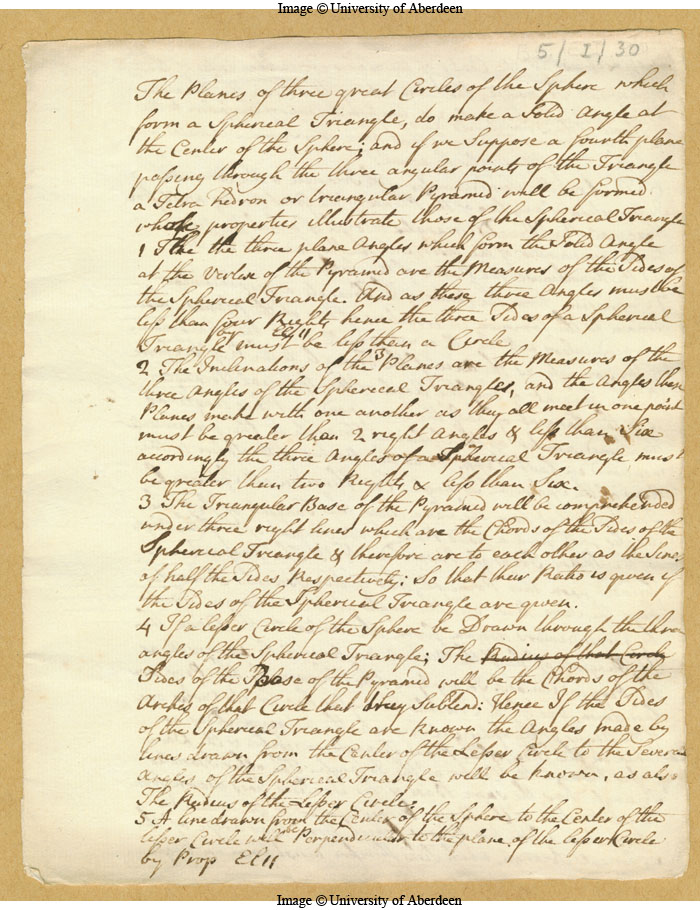 Image © University of Aberdeen
5/ I/ 30
The Planes of three great Circles of the Sphere which
form a Spherical Triangle, do make a Solid Angle at
the Center of the Sphere; and if we Suppose a fourth plane
passing through the three angular points of the Triangle
a Tetra hedron or triangular Pyramid will be formed
whose properties illustrate those of the Spherical Triangle
1 The the three plane Angles which form the Solid Angle
at the Vertex of the Pyramid are the Measures of the Sides of
the Spherical Triangle. And as these three Angles must be
less than four Rights hence the three Sides of a Spherical
by El 11
Triangle must be less than a Circle
2 The Inclinations of the 3 Planes are the Measures of the
three Angles of the Spherical Triangles, and the Angles these
Planes make with one another as they all meet in one point
must be greater than 2 right Angles & less than Six
accordingly the three Angles of a Spherical Triangle must
be greater than two Rights & less than Six.
3 The Triangular Base of the Pyramid will be comprehended
under three right lines which are the Chords of the Sides of the
Spherical Triangle & therefore are to each other as the Sines
of half the Sides Respectively: So that their Ratio is given if
the Sides of the Spherical Triangle are given.
4 If a lesser Circle of the Sphere be Drawn through the three
angles of the Spherical Triangle; The Radius of that Circle
Sides of the Base of the Pyramid will be the Chords of the
Arches of that Circle that they Subtend: Hence If the Sides
of the Spherical Triangle are known the Angles made by
lines drawn from the Center of the Lesser Circle to the Several
Angles of the Spherical Triangle will be known, as also
The Radius of the Lesser Circle.
5 A line drawn from the Center of the Sphere to the Center of the
lesser Circle will be Perpendicular to the plane of the lesser Circle
by Prop El 11
Image © University of Aberdeen